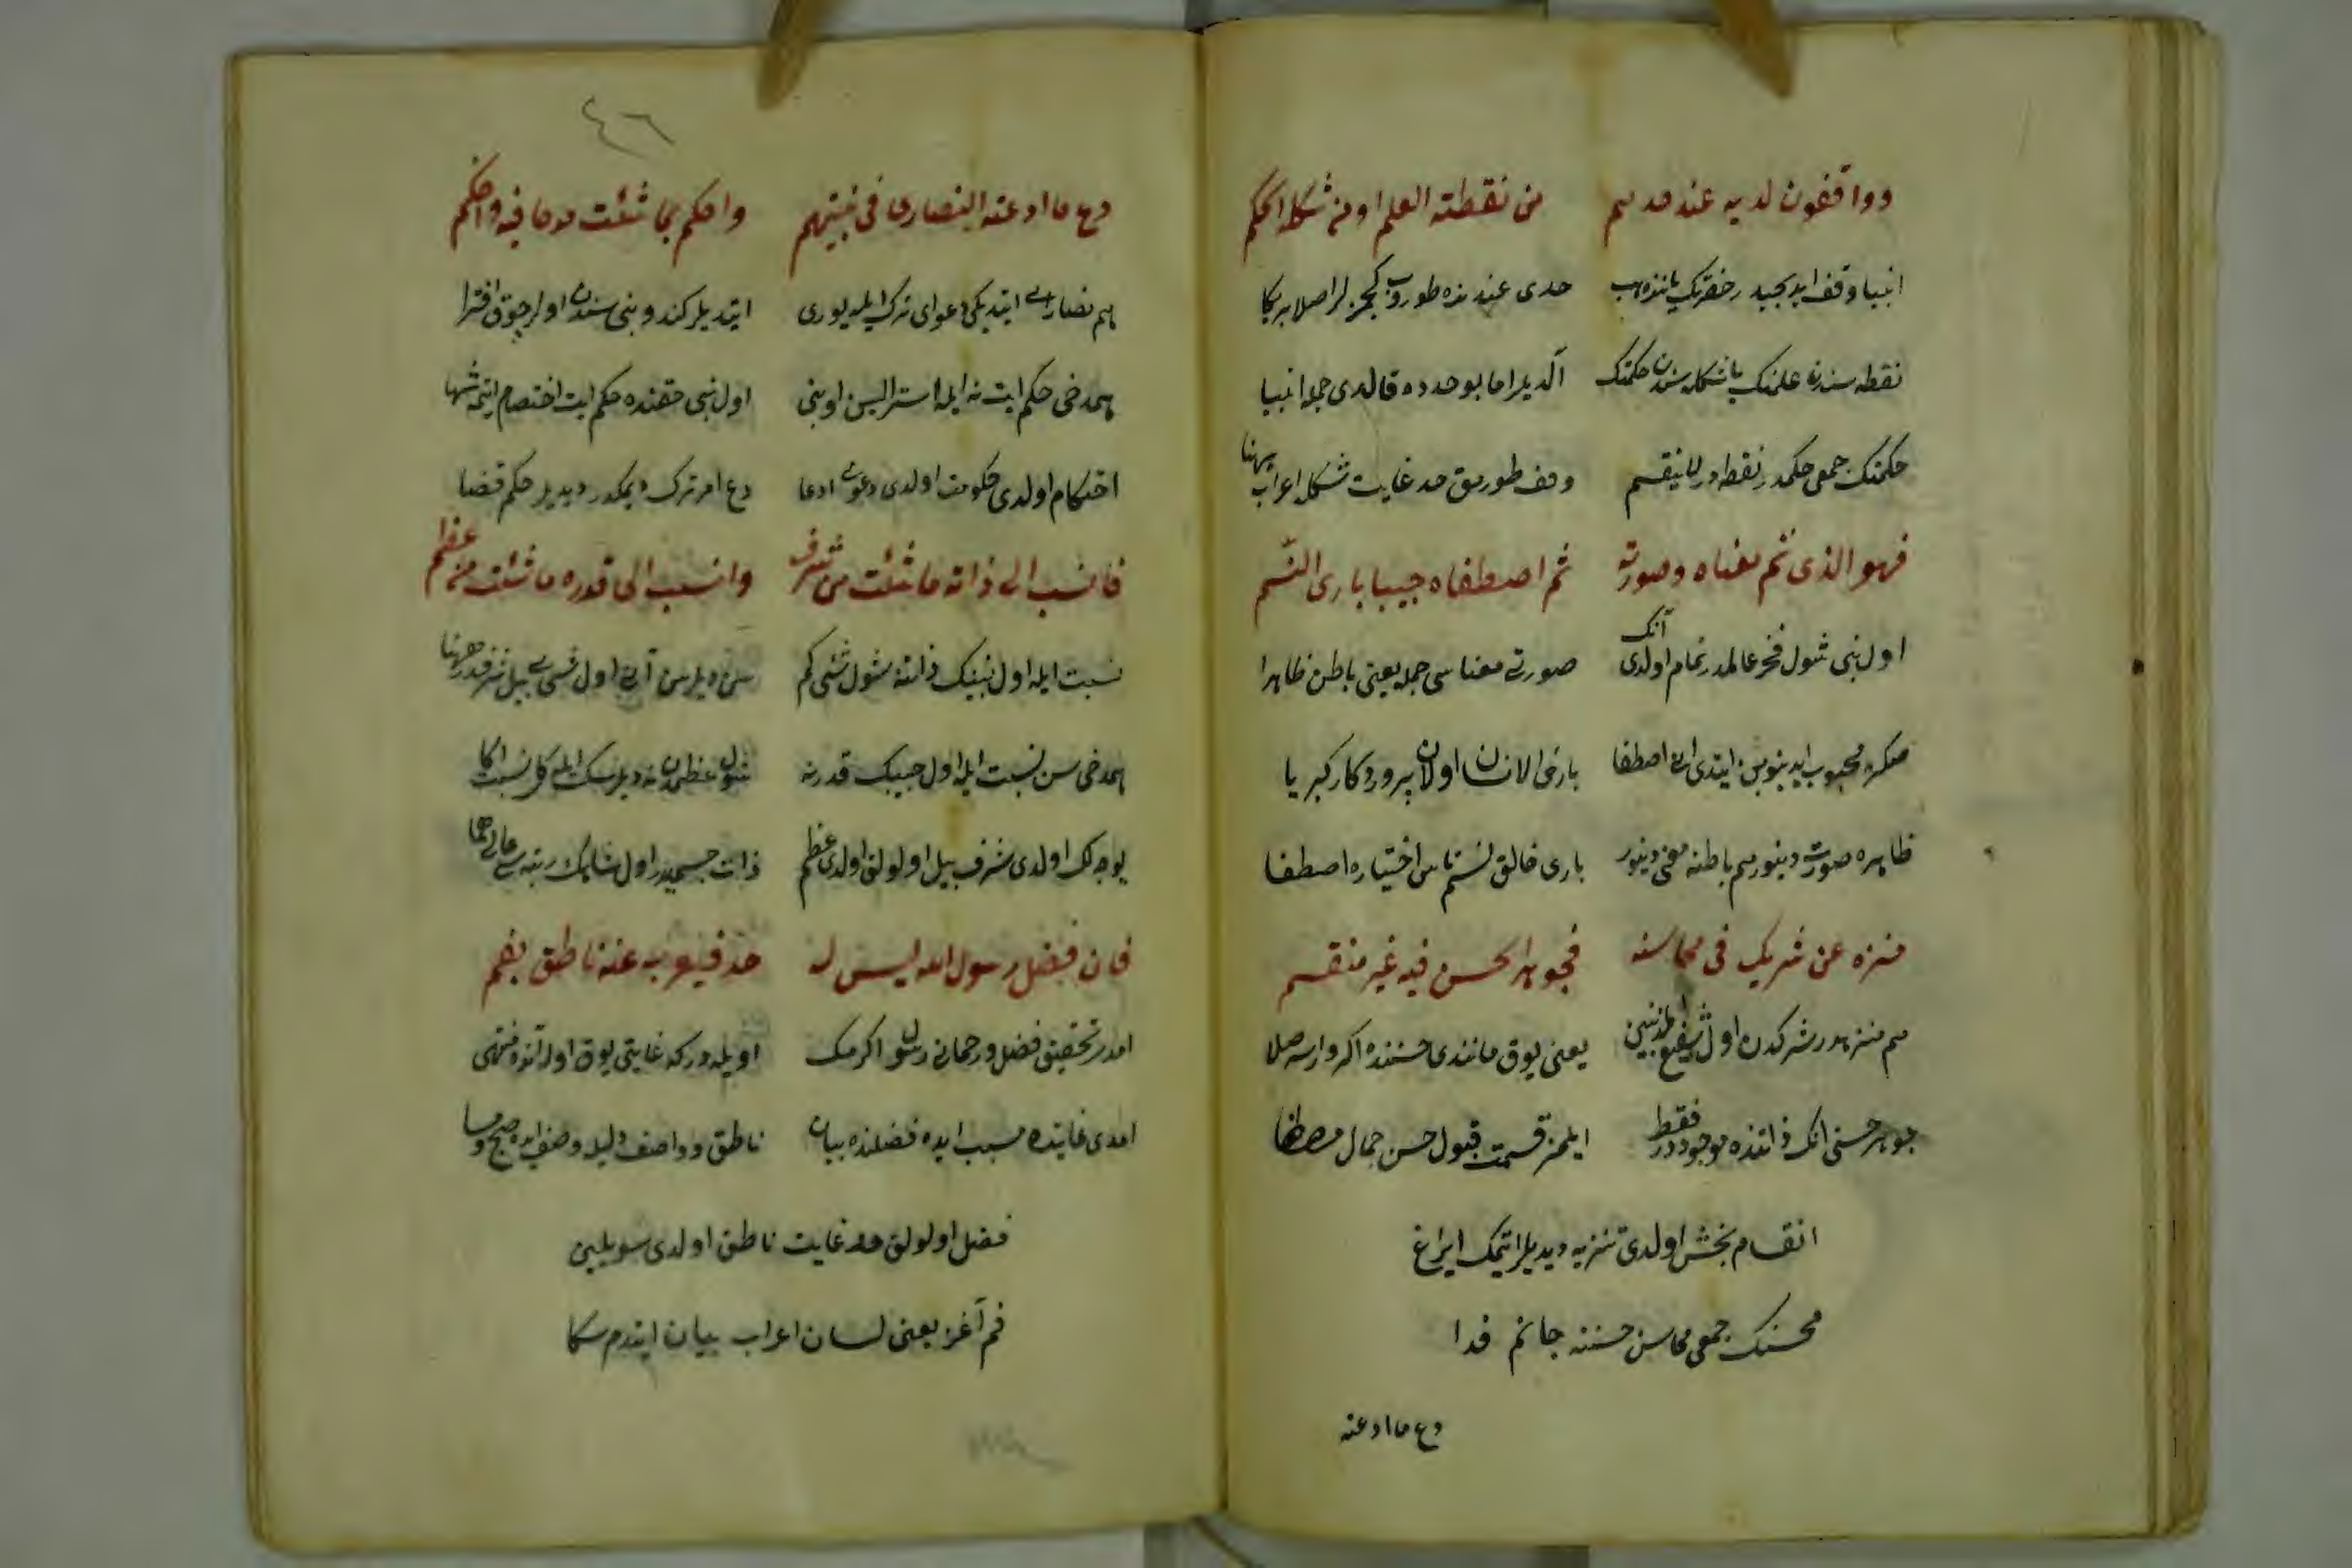 وواقفون لديه عند حدهم من نقطة العلم او من شكلة الحكم
انبيا وقف ايديجيدر حضرتك ياننده هب حدى عندنده طوروب كچمزلر اصلا بريكا
نقطه سندن علمنك يا شكله سندن حكمتك آلديلر اما بو حدده قالدى جمله انبيا
حكمتك جمعى حكمدر نقطه در لا ينقسم وقف طورمق حد غايت شكل اعراب
فهو الذى تم معناه وصورته ثم اصطفاه حبيبا بارئ النسم
اول نبى شول فخر عالمدر تمام اولدى آنك صورتى معناسى جمله يعنى باطن ظاهرا
صكره محبوب ايدينوبن ايتدى انى اصطفا بارئ الانسان اولان پروردكار كبريا
ظاهره صورت دينور هم باطنه معنى دينور بارى خالق نسم ناس اختياره اصطفا
منزه عن شريك فى محاسنه فجوهر الحسن فيه غير منقسم
هم منزهدر شركدن اول شفيع المذنبين يعنى يوق مانندى حسننده اكر وارسه صلا
جوهر حسنى انك ذاتنده موجوددر فقط ايلمز قسمت قبول حسن جمال مصطفا
انقسام بخش اولدى تنزيه ديديلر ايتمك ايراغ
محسنك جمعى محاسن حسننه جانم فدا
دع ما ادعته
٤٦
دع ما ادعته النصارى فى نبيهم واحكم بما شئت مدحا فيه واحتكم
هم نصارى ايتديكى دعواى ترك ايله يورى ايتديلر كندو نبى سندن اولر چوق افترا
همدخى حكم ايت نه ايله استرايسن اونى اول نبى حقنده حكم ايت اختصام ايتمه شها
احتكام اولدى حكومت اولدى دعوى ادعا دع امر ترك ديمكدر ديديلر حكم قضا
فانسب الى ذاته ما شئت من شرف وانسب الى قدره ما شئت من عظم
نسبت ايله اول نبينك ذاتنه شول شئى كم سن ديلرسن آنى اول شى بيل شرفدر
همدخى سن نسبت ايله اول حبيبك قدرنه شول عظمدن نه ديلرسك ايله كل نسبت اكا
يوجه لك اولدى شرف بيل اولولق اولدى عظم ذات جسميدر اول شاهك رتبه سى عالى
فان فضل رسول الله ليس له حد فيعرب عنه ناطق بفم
امدى تحقيق فضل و رحمانى رسول اكرمك اويله دركه غايتى يوق اوله آنده منتهى
امدى غايتده سبب ايده فضلنده بيان ناطق و واصف دليله وصف ايده صبح و مسا
فضل اولولق حد غايت ناطق اولدى سويليين
فم آغز يعنى لسان اعراب بيان ايتدم سكا